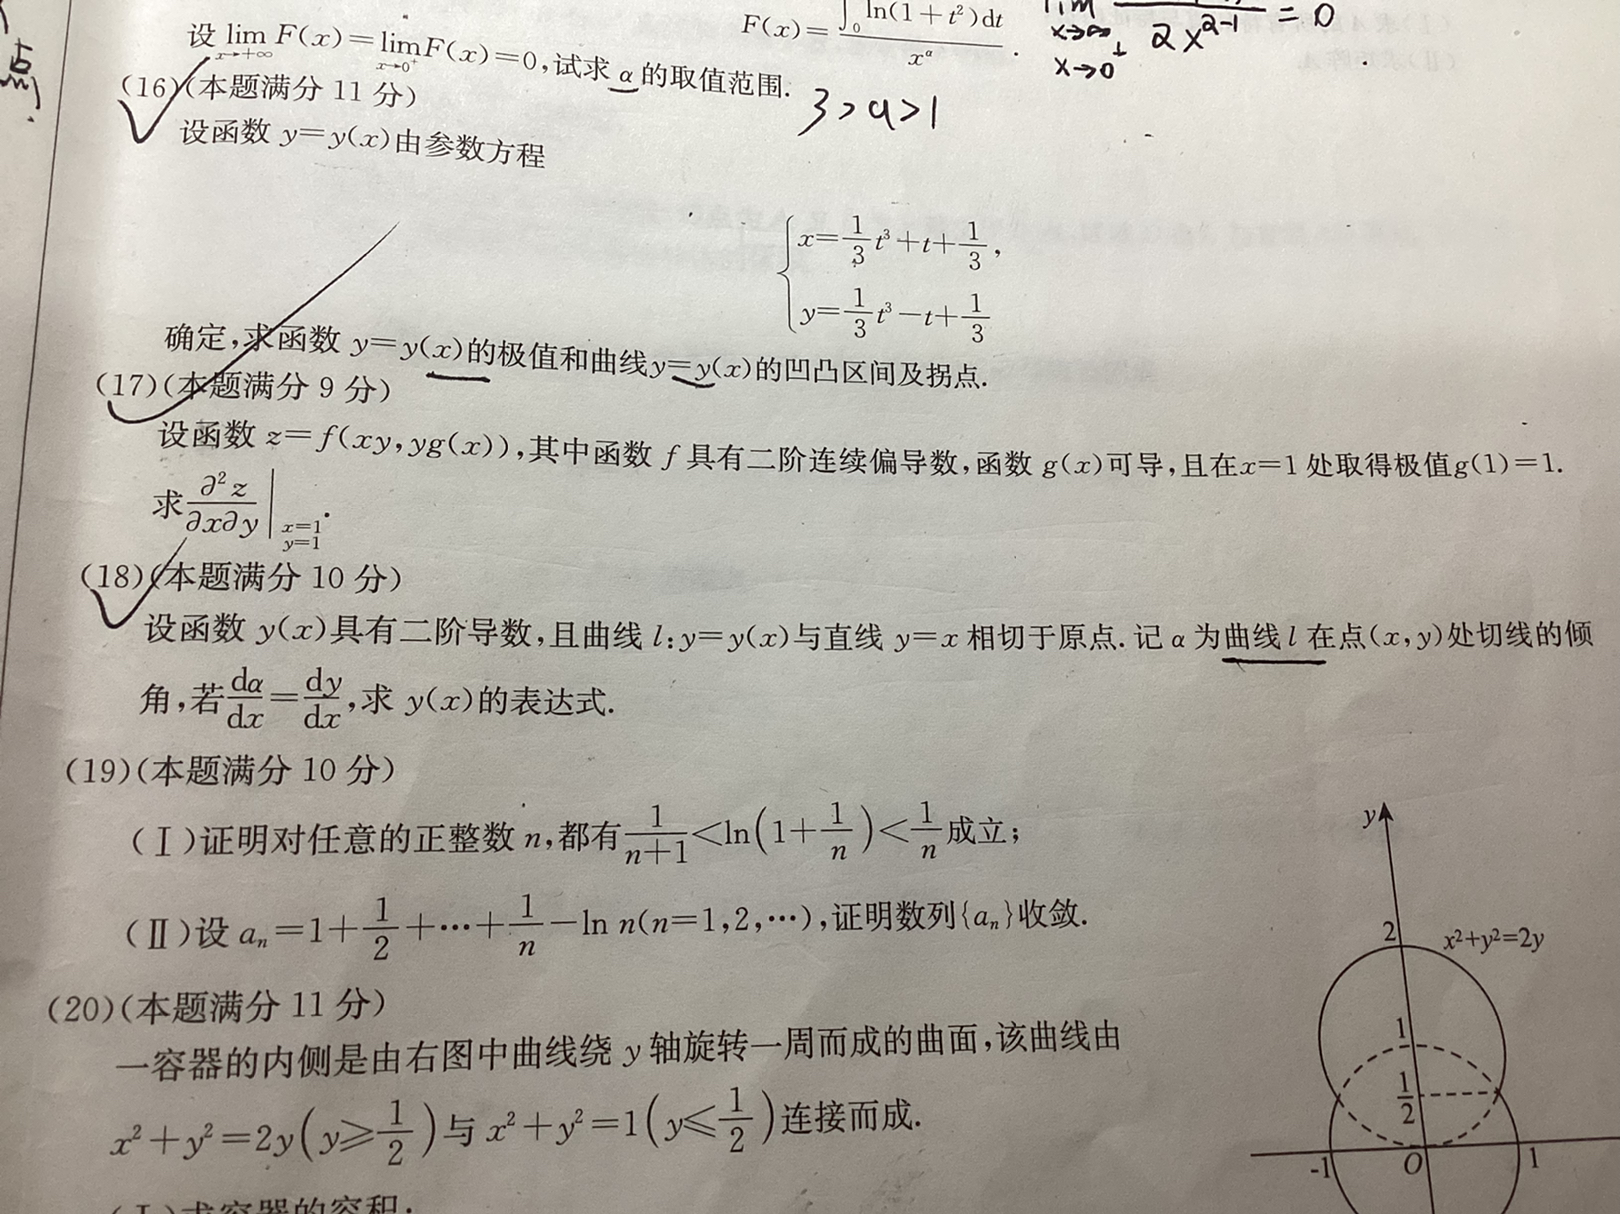 点.
F(x)=∫₀ ln(1+t²)dt / x^α .
lim
x→∞
x→0⁺
2x²⁻¹ = 0
设 lim_{x→+∞} F(x)=lim_{x→0⁺} F(x)=0,试求 α 的取值范围.
3>a>1
(16)(本题满分 11 分)
设函数 y=y(x)由参数方程
{ x=1/3 t³+t+1/3,
y=1/3 t³-t+1/3
确定,求函数 y=y(x)的极值和曲线y=y(x)的凹凸区间及拐点.
(17)(本题满分 9 分)
设函数 z=f(xy,yg(x)),其中函数 f 具有二阶连续偏导数,函数 g(x)可导,且在x=1 处取得极值g(1)=1.
求 ∂²z/∂x∂y |_{x=1 y=1}.
(18)(本题满分 10 分)
设函数 y(x)具有二阶导数,且曲线 l:y=y(x)与直线 y=x 相切于原点.记 α 为曲线 l 在点(x,y)处切线的倾
角,若 dα/dx = dy/dx,求 y(x)的表达式.
(19)(本题满分 10 分)
(Ⅰ)证明对任意的正整数 n,都有 1/(n+1)<ln(1+1/n)<1/n 成立;
(Ⅱ)设 aₙ=1+1/2+⋯+1/n-ln n(n=1,2,⋯),证明数列{aₙ}收敛.
(20)(本题满分 11 分)
一容器的内侧是由右图中曲线绕 y 轴旋转一周而成的曲面,该曲线由
x²+y²=2y(y≥1/2)与 x²+y²=1(y≤1/2)连接而成.
(Ⅰ)求容器的容积;
y
2
x²+y²=2y
1
1/2
-1 O 1